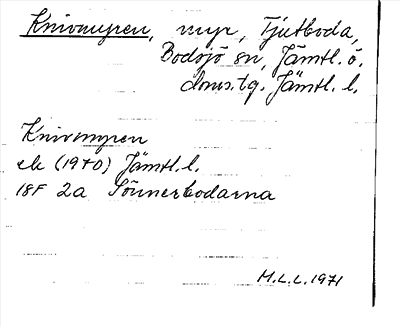 Knivmyren, myr, Tjutboda,
Bodsjö sn, Jämtl. ö.
doms.tg. Jämtl. l.
Knivmyren
ek (1970) Jämtl. l.
18F 2a Sönnerbodarna
M.L.L. 1971